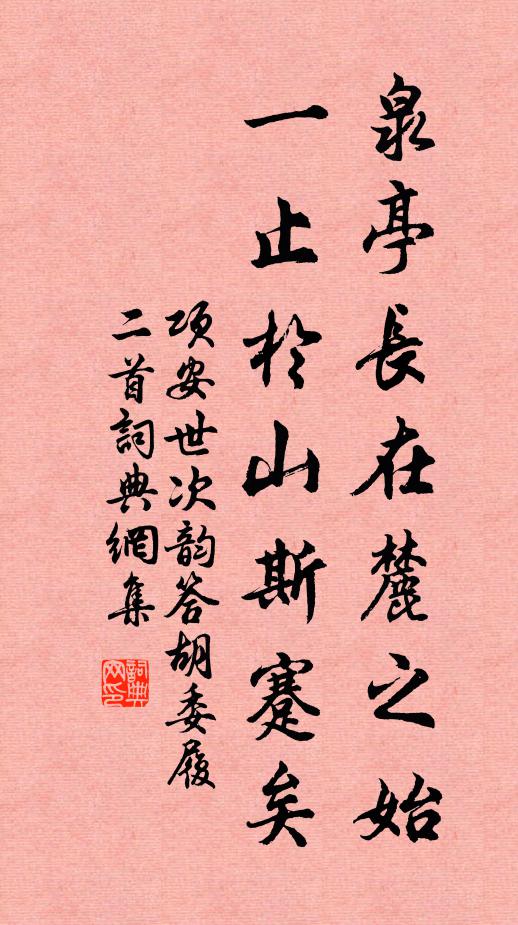 泉亭長在麓之始
一止於山斯蹇矣
項安世次韵答胡委履
二首詞典網集
詞典網印